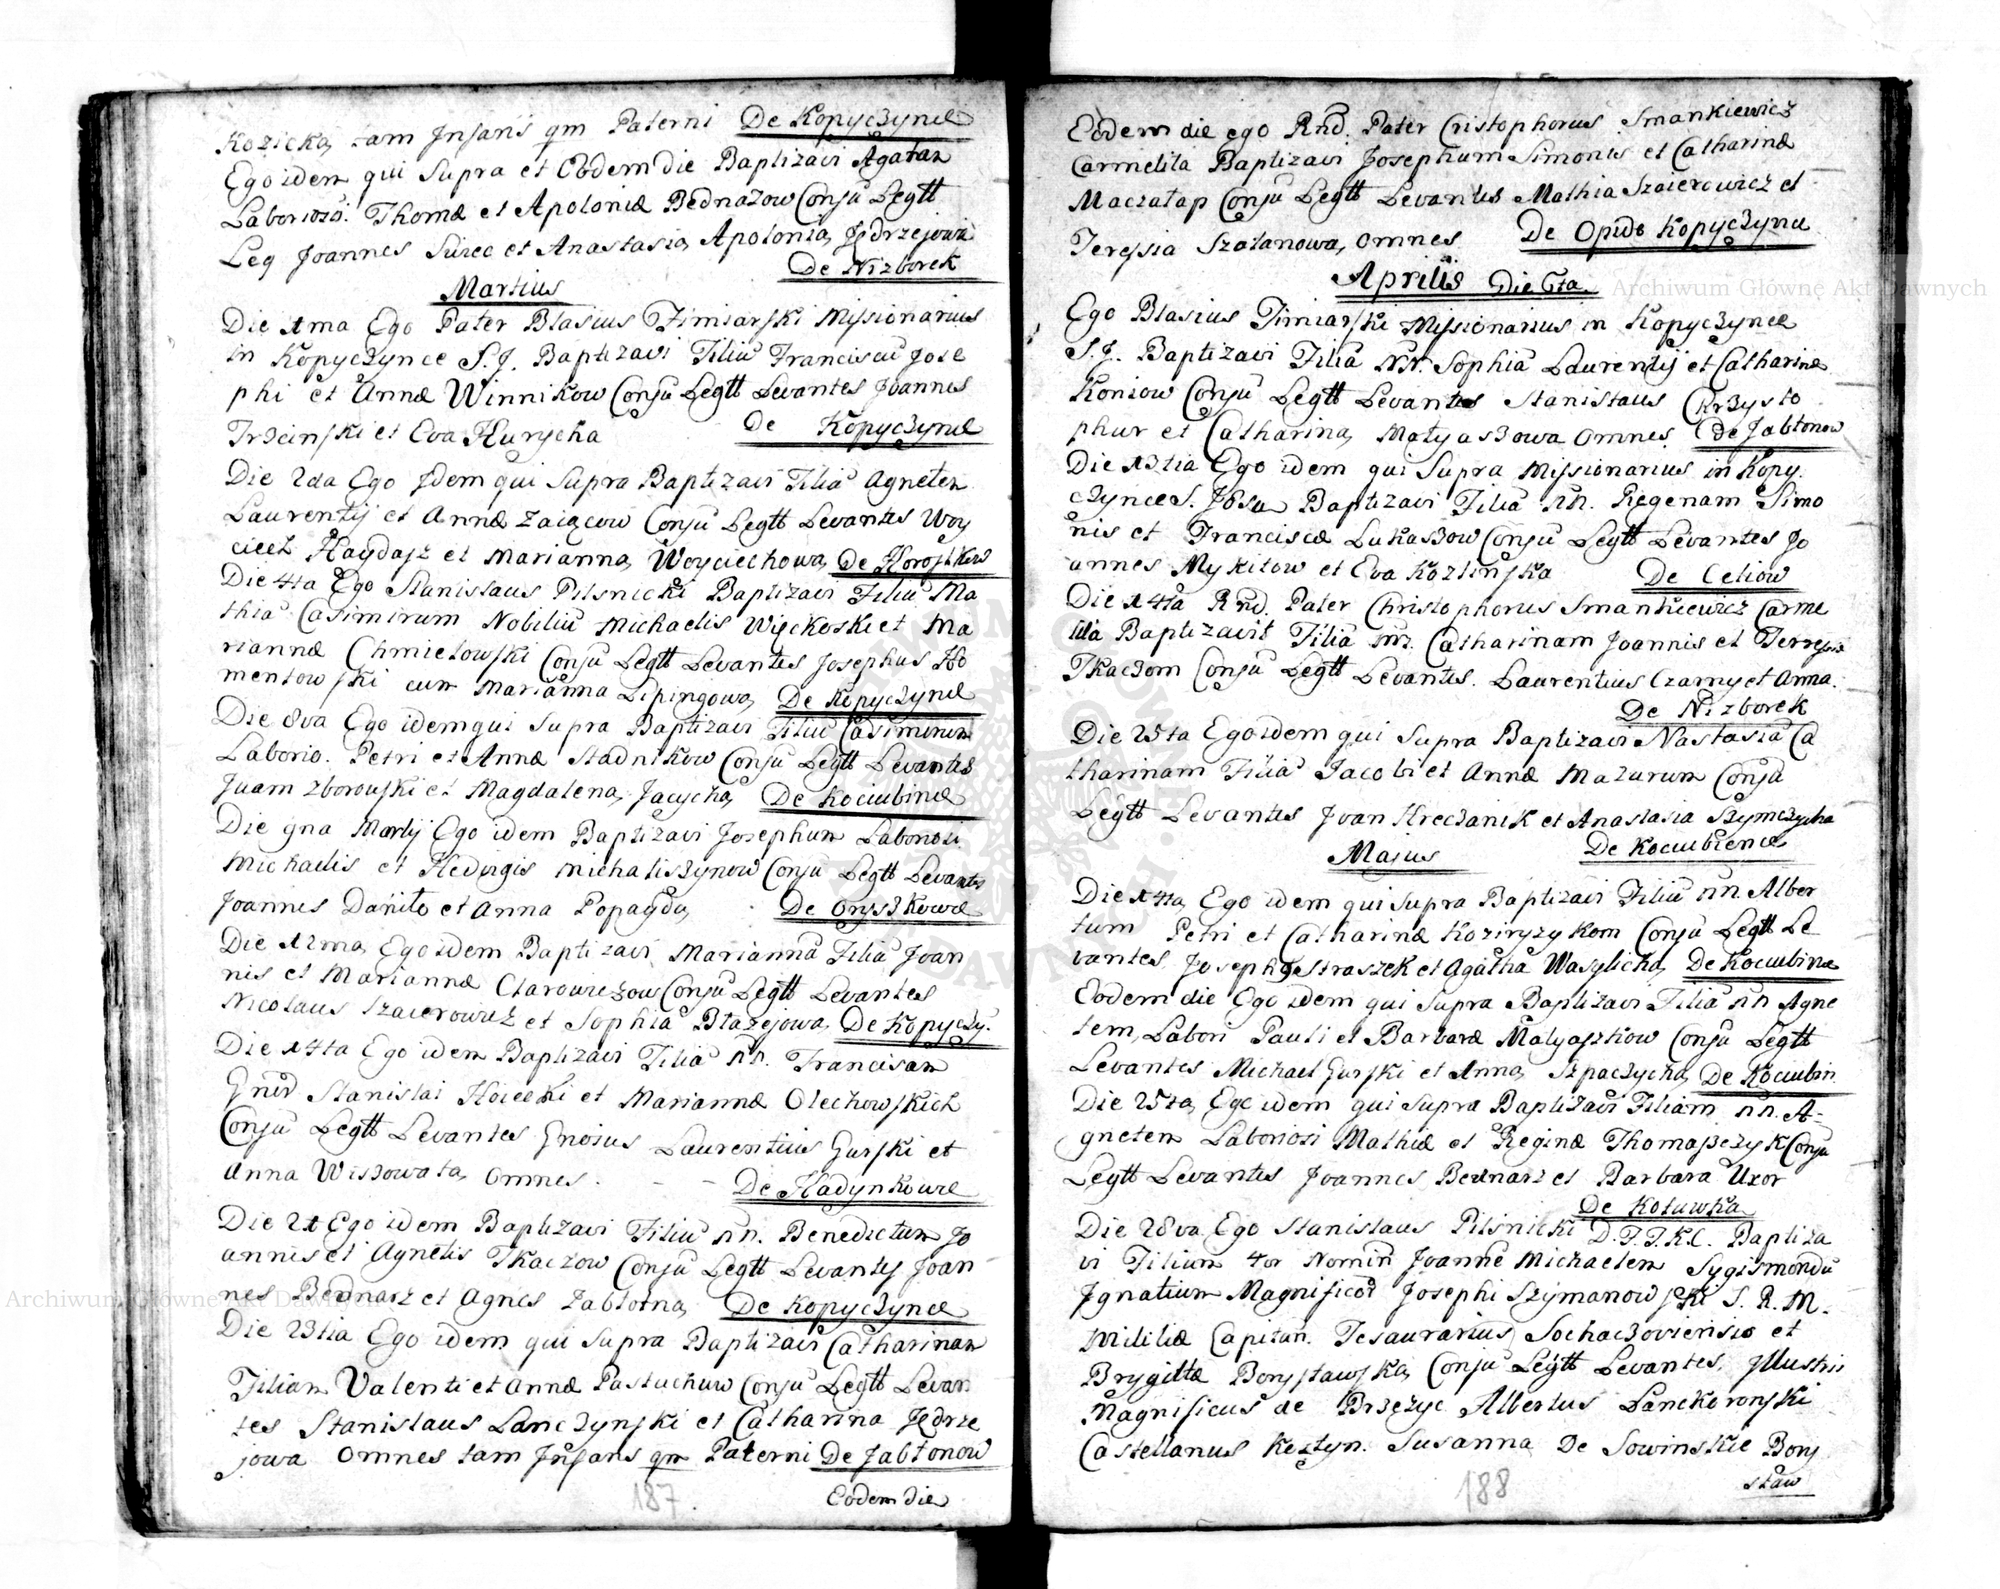 Kozicka, tam Infans qm Paterni De Kopyczynce
Ego idem qui Supra et Eodem die Baptizavi Agatam
Laborioso. Thomæ et Apoloniæ Bednazow Conju Legtt
Lev Joannes Surec et Anastasia, Apolonia, Jędrzejowa
De Nizborek
Martius
Die 1ma Ego Pater Blasius Zimiarski Missionarius
in Kopyczynce S.J. Baptizavi Filiu Franciscu Jose
phi et Annæ Winnikow Conju Legtt Levantes Joannes
Trzcinski et Eva Hurycha De Kopyczynce
Die 2da Ego Idem qui Supra Baptizavi Filia Agneten
Laurentij et Annæ Zaiącow Conju Legtt Levantes Woy
ciech Haydasz et Marianna, Woyciechowa, De Horostkow
Die 4ta Ego Stanislaus Pilsnicki Baptizavi Filiu Ma
thia Casimirum Nobiliu Michaelis Więckoski et Ma
riannæ Chmielowski Conju Legtt Levantes Josephus Ho
mentowski cum Marianna Lipingowa, De Kopyczynce
Die 8va Ego idem qui Supra Baptizavi Filiu Casimirum
Laborio. Petri et Annæ Stadnikow Conju Legtt Levantes
Juam Zborouski et Magdalena, Jacycha, De Kociubince
Die 9na Martij Ego idem Baptizavi Josephum Laboriosi
Michaelis et Hedvigis Michaliszynow Conju Legtt Levantes
Joannes Daniło et Anna Popayda, De Onyszkowce
Die 12ma, Ego idem Baptizavi Marianna Filia Joan
nis et Mariannæ Ctarowiezow Conju Legtt Levantes
Nicolaus Szaierowicz et Sophia Błazejowa, De Kopyczy.
Die 14ta Ego idem Baptizavi Filia nn. Francisam
Gnird Stanislai Hoiecki et Mariannæ Olechowskich
Conju Legtt Levantes Gnosus Laurentius Gurski et
Anna Wiszowata, omnes. De Hadynkowce
Die 21 Ego idem Baptizavi Filiu nn. Benedictum Jo
annis et Agnetis Tkaczow Conju Legtt Levantes Joan
nes Bednarz et Agnes Zabłotna, De Kopyczynce
Die 23tia Ego idem qui Supra Baptizavi Catharinam
Filiam Valenti et Annæ Pastuchuw Conju Legtt Levan
tes Stanislaus Lanczynski et Catharina Jędrze
jowa omnes tam Infans qm Paterni De Jabłonow
187. Eodem die
Eodem die ego Rnd. Pater Cristophorus Smankiewicz
Carmelita Baptizavi Josephum Simonis et Catharinæ
Maczałap Conju Legtt Levantes Mathia Szaierowicz et
Teressia Szałanowa, omnes De Opido Kopyczynce
Aprilis Die 6ta.
Ego Blasius Zimiarski Missionarius in Kopyczynce
S.J. Baptizavi Filia NN. Sophia Laurentij et Catharinæ
Koniow Conju Legtt Levantes Stanislaus Chrzysto
phur et Catharina, Matyaszowa omnes De Jabłonow
Die 13tia Ego idem qui Supra Missionarius in Kopy
czynce S. Josu Baptizavi Filia nn. Regenam Simo
nis et Franciscæ Lukaszow Conju Legtt Levantes Jo
annes Mykitow et Eva Kozlinska De Celiow
Die 14ta Rnd. Pater Christophorus Smankiewicz Carme
lita Baptizavit Filia nn. Catharinam Joannis et Terresiæ
Tkaczom Conju Legtt Levantes. Laurentius Czarny et Anna.
De Nizborek
Die 25ta Ego idem qui Supra Baptizavi Nastasia Ca
tharinam Filia Jacobi et Annæ Mazurum Conju
Legtt Levantes Jvan Hreczanik et Anastasia Szymczycha
Majus De Kociubience
Die 14ta, Ego idem qui Supra Baptizavi Filiu nn. Alber
tum Petri et Catharinæ Koziryzykom Conju Legtt Le
vantes, Joseph Straszek et Agatha Wasylicha, De Kociubince
Eodem die Ego idem qui Supra Baptizavi Filia nn Agne
tem, Labori Pauli et Barbaræ Matyaszkow Conju Legtt
Levantes Michael Gurski et Anna, Szpaczycha, De Kociubin.
Die 25ta, Ego idem qui Supra Baptizavi Filiam nn. A-
gneten Laboriosi Mathiæ et Reginæ Thomaszczyk Conju
Legtt Levantes Joannes Bednarz et Barbara Uxor
De Kotuwka
Die 28va, Ego Stanislaus Pilsnicki D.J.T.K.C. Baptiza
vi Filium 4or Nomin Joanne Michaelem Sygismondu
Ignatium Magnificor Josephi Szymanowski S.R.M.
Militiæ Capitan. Tesaurarius Sochaczoviensis et
Brygittæ Borysławska, Conju Legtt Levantes. Jllustris
Magnificus de Brzezye Albertus Lanckoronski
Castellanus Keztyn. Susanna De Sowinskie Bory
188 sław
Archiwum Główne Akt Dawnych
Archiwum Główne Akt Dawnych